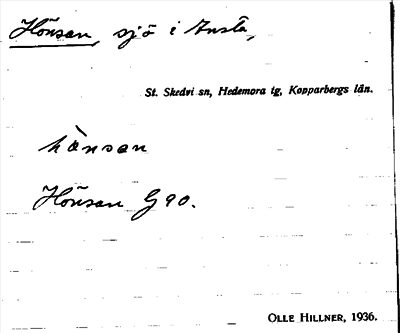 Hönsan, sjö i Ansta,
St. Skedvi sn, Hedemora tg, Kopparbergs län.
hȁnsan
Hönsan G 90.
OLLE HILLNER, 1936.